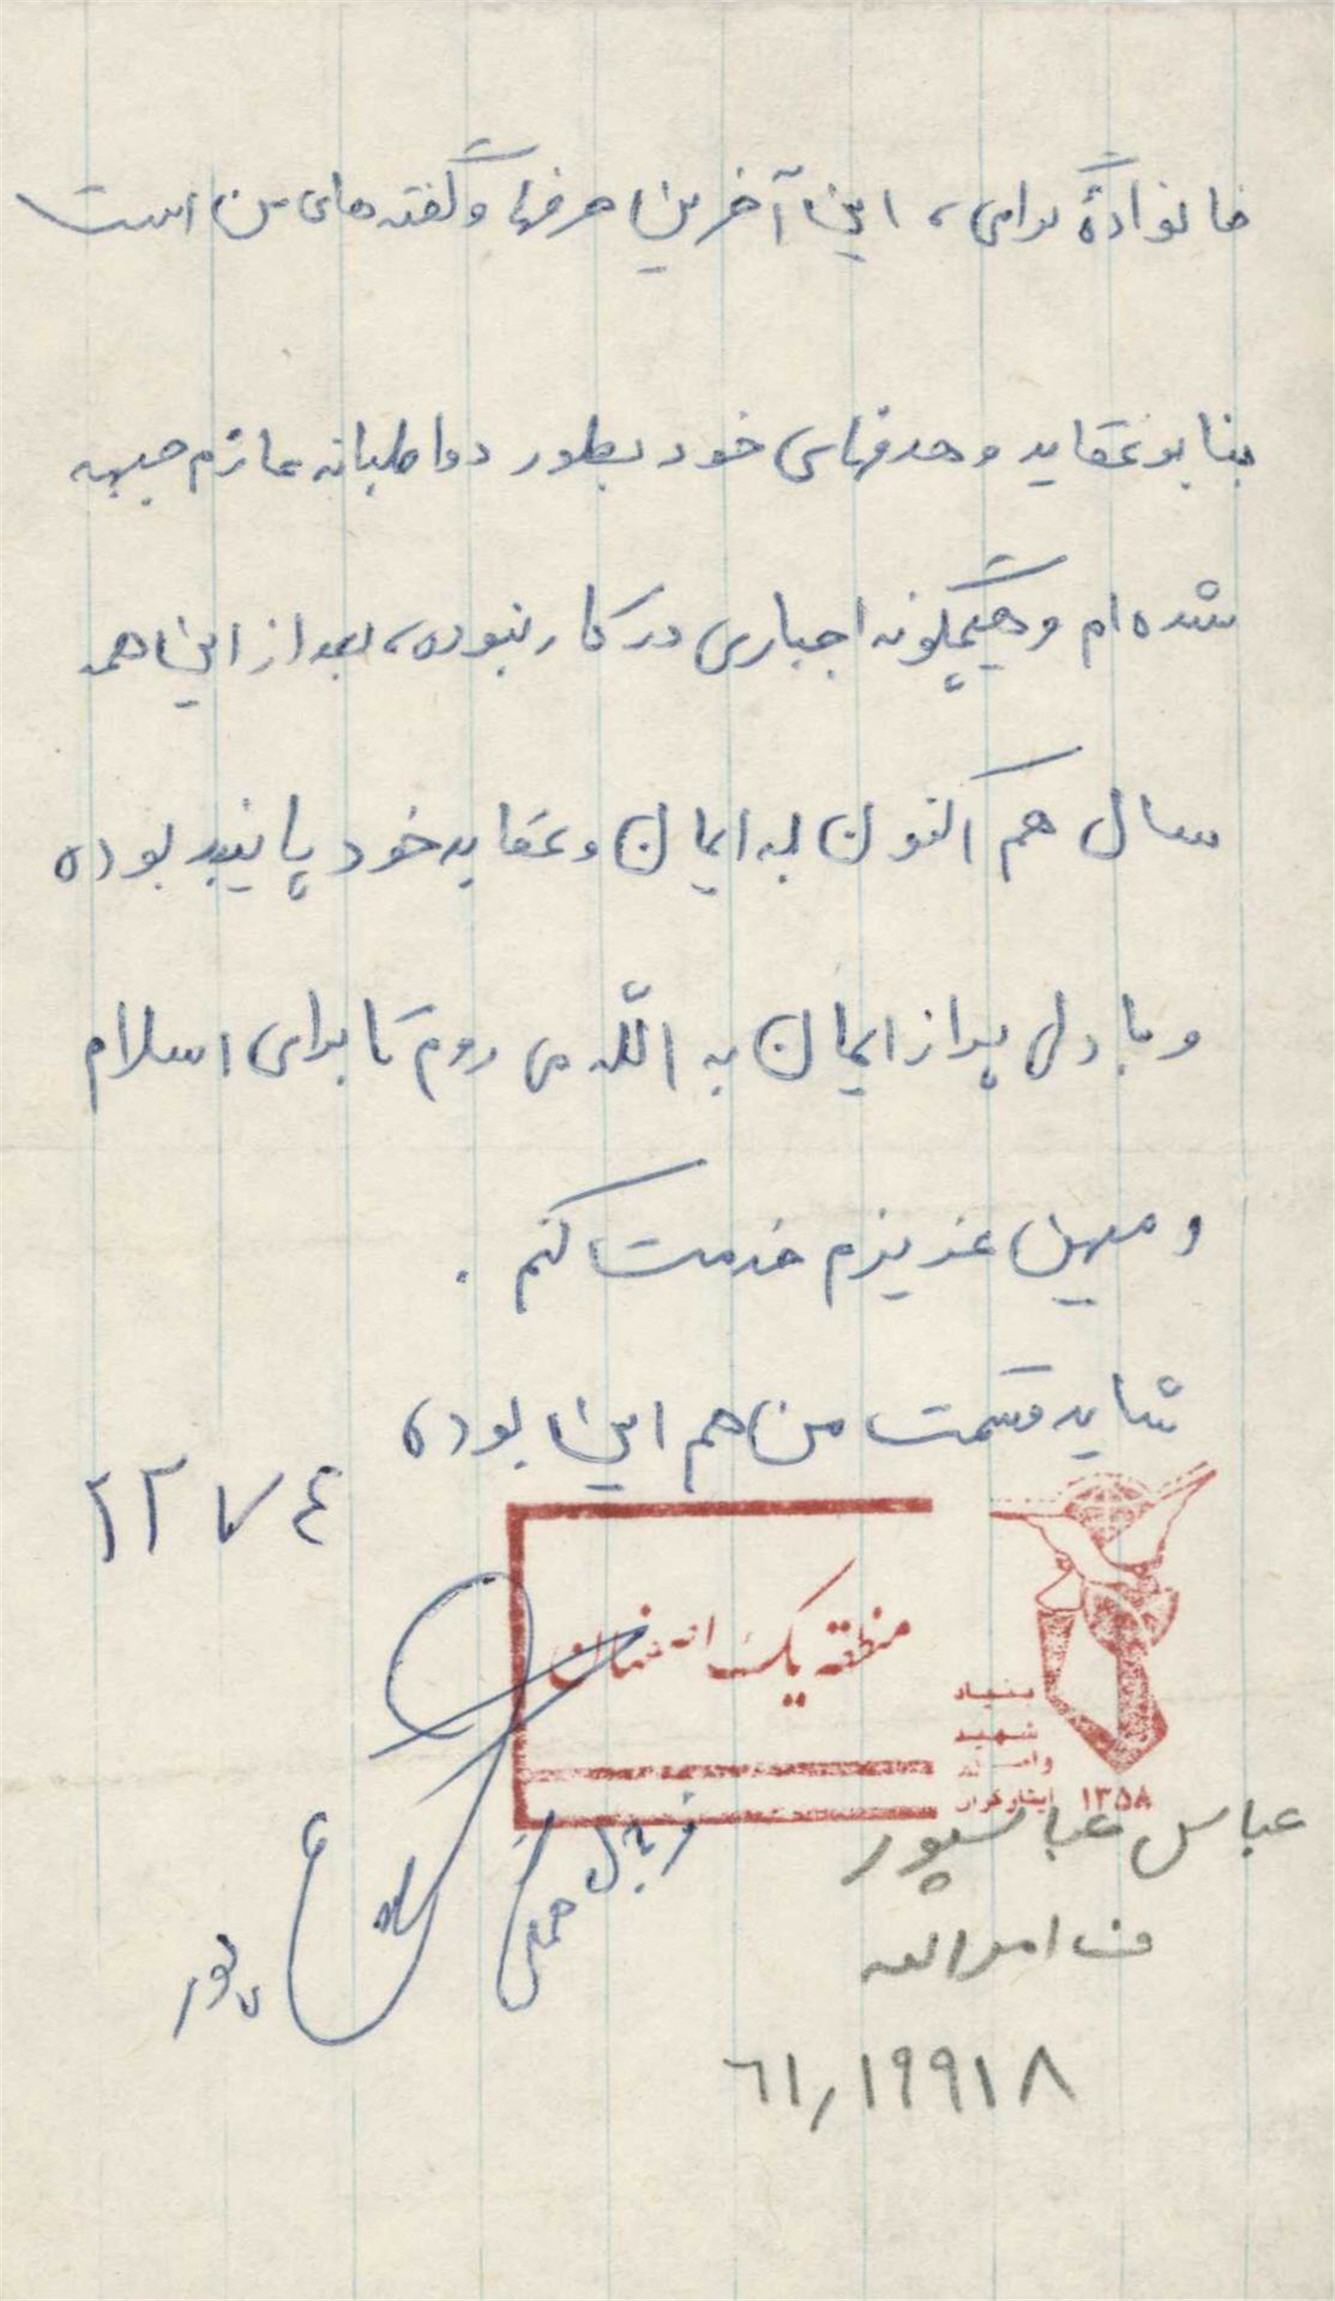 خانوادهٔ گرامی، این آخرین حرفها و گفته های من است
بنا بر عقاید و هدفهای خود بطور داوطلبانه عازم جبهه
شده ام و هیچگونه اجباری در کار نبوده، بعد از این همه
سال هم اکنون به ایمان و عقاید خود پایبند بوده
و با دلی پر از ایمان به اللّه می روم تا برای اسلام
و میهن عزیزم خدمت کنم .
شاید قسمت من هم این بوده
۲۲ ۷ ٤
منطقه یک اصفهان
بنیاد
شهید
و امور
ایثارگران ۱۳۵۸
عباس عباسپور
ف امراله
٦١/١٩٩١٨
پور